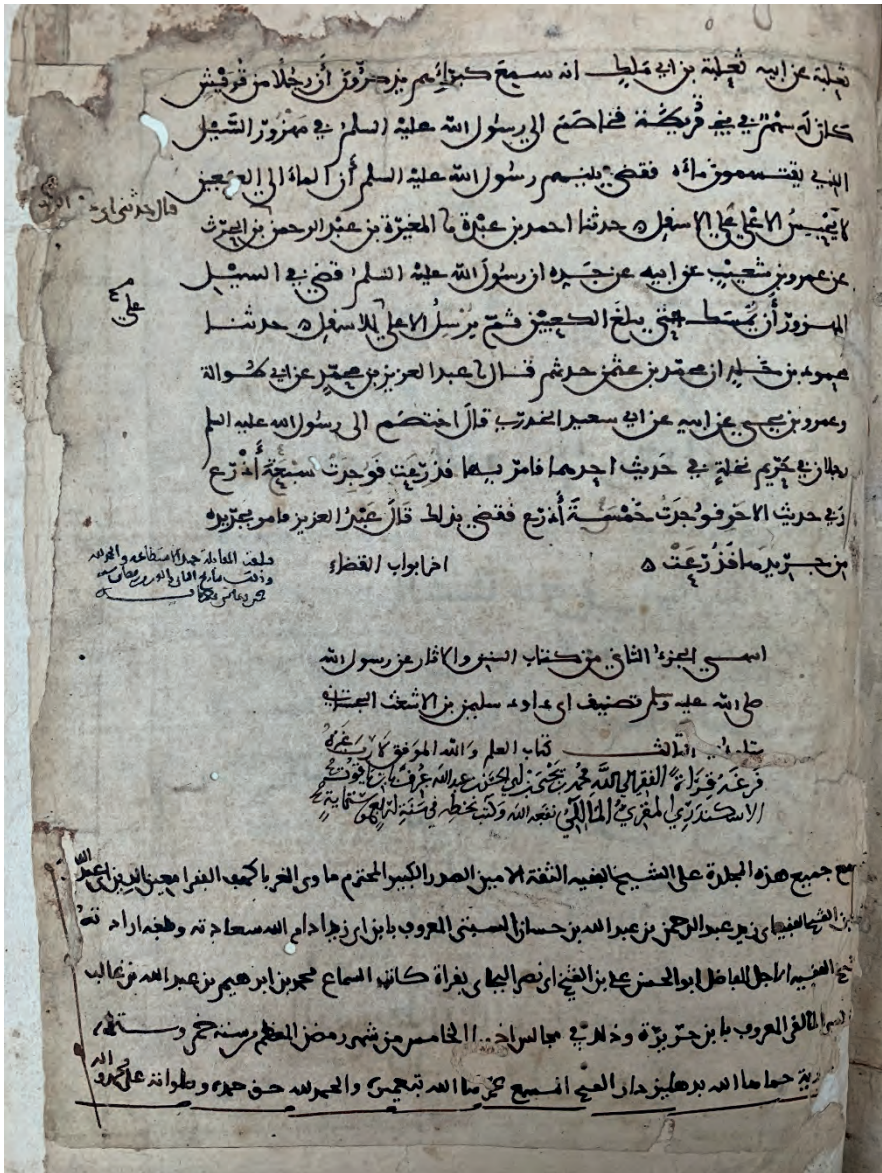 ثعلبة عن ابيه ثعلبة بن ابي ملك انه سمع كبراءهم يذكرون أن رجلا من قريش
كان له سهم في بني قريظة فخاصم الى رسول الله عليه السلم في مهزور السيل
الذي يقتسمون ماءه فقضى بينهم رسول الله عليه السلم أن الماء الى الكعبين
لا يحبس الاعلى على الاسفل ۵ حدثنا احمد بن عبدة نا المغيرة بن عبد الرحمن بن الحرث
قال حدثني ابي
عن عمرو بن شعيب عن ابيه عن جده ان رسول الله عليه السلم قضى في السيل
المهزور أن يمسك حتى يبلغ الكعبين ثم يرسل الاعلى على الاسفل ۵ حدثنا
محمود بن خلد ان محمد بن عثمن حدثهم قال نا عبد العزيز بن محمد عن ابي طوالة
وعمرو بن يحيى عن ابيه عن ابي سعيد الخدري قال اختصم الى رسول الله عليه السلم
رجلان في حريم نخلة في حديث احدهما فامر بها فذرعت فوجدت سبعة أذرع
وفي حديث الاخر فوجدت خمسة أذرع فقضى بذلك قال عبد العزيز فامر بجريدة
من جريدها فذرعت ۵ اخر ابواب القضاء
بلغت المقابلة جهد الاستطاعة والحمد لله
انتهى الجزء الثاني من كتاب السنن والاثار عن رسول الله
صلى الله عليه وسلم تصنيف ابي داود سليمن بن الاشعث السجستاني
يتلوه في الثالث كتاب العلم والله الموفق لا رب غيره
فرغه قراءة الفقير الى الله محمد بن يحيى بن ابي الحسن بن عبد الله عرف بابن ياقوت
الاسكندري المقري المالكي نفعه الله وكتب بخطه في سنة
سمع جميع هذه المجلدة على الشيخ الفقيه الثقة الامين الصدر الكبير المحترم ماوى الغربا كهف الفقرا معين الدين ابي عبد الله
بن الشيخ الفقيه ابي زيد عبد الرحمن بن عبد الله بن حسان السبتي المعروف بابن ادام الله سعادته وبلغه ارادته
الفقيه الاجل الفاضل ابو الحسن علي بن الشيخ ابي نصر البجاي بقراة كاتب السماع محمد بن ابرهيم بن عبد الله بن غالب
المالقي المعروف بابن حريرة وذلك في مجالس الخامس من شهر رمضن المعظم من سنة خمس وستمئة
حماها الله بدهليز دار الشيخ المسمع عمرها الله بتعميره والحمد لله حق حمده وصلواته على محمد واله